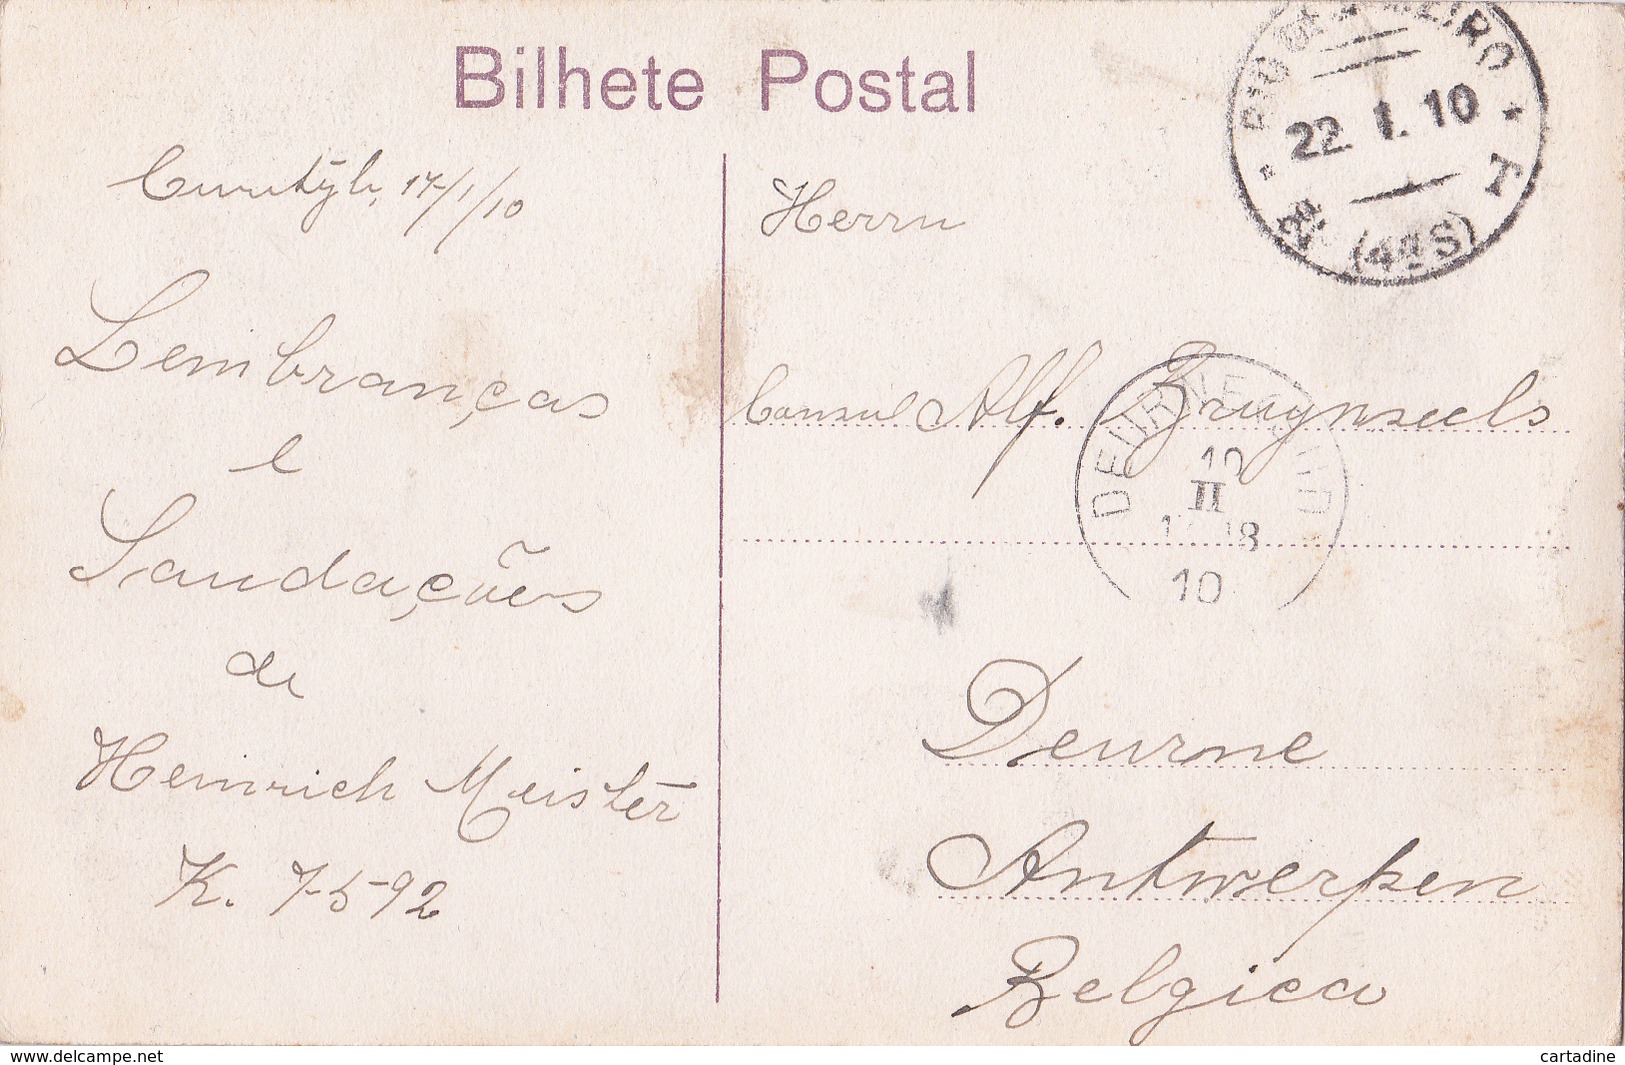 Bilhete Postal
RIO DE JANEIRO
22. 1. 10
T
(4ªS)
Curityb, 17/1/10
Lembranças
e
Saudações
de
Heinrich Meister
K. 7-5-92
Herrn
Consul Alf. Bruynseels
DEURNE
10
II
10
Deurne
Antwerpen
Belgica
www.delcampe.net
cartadine